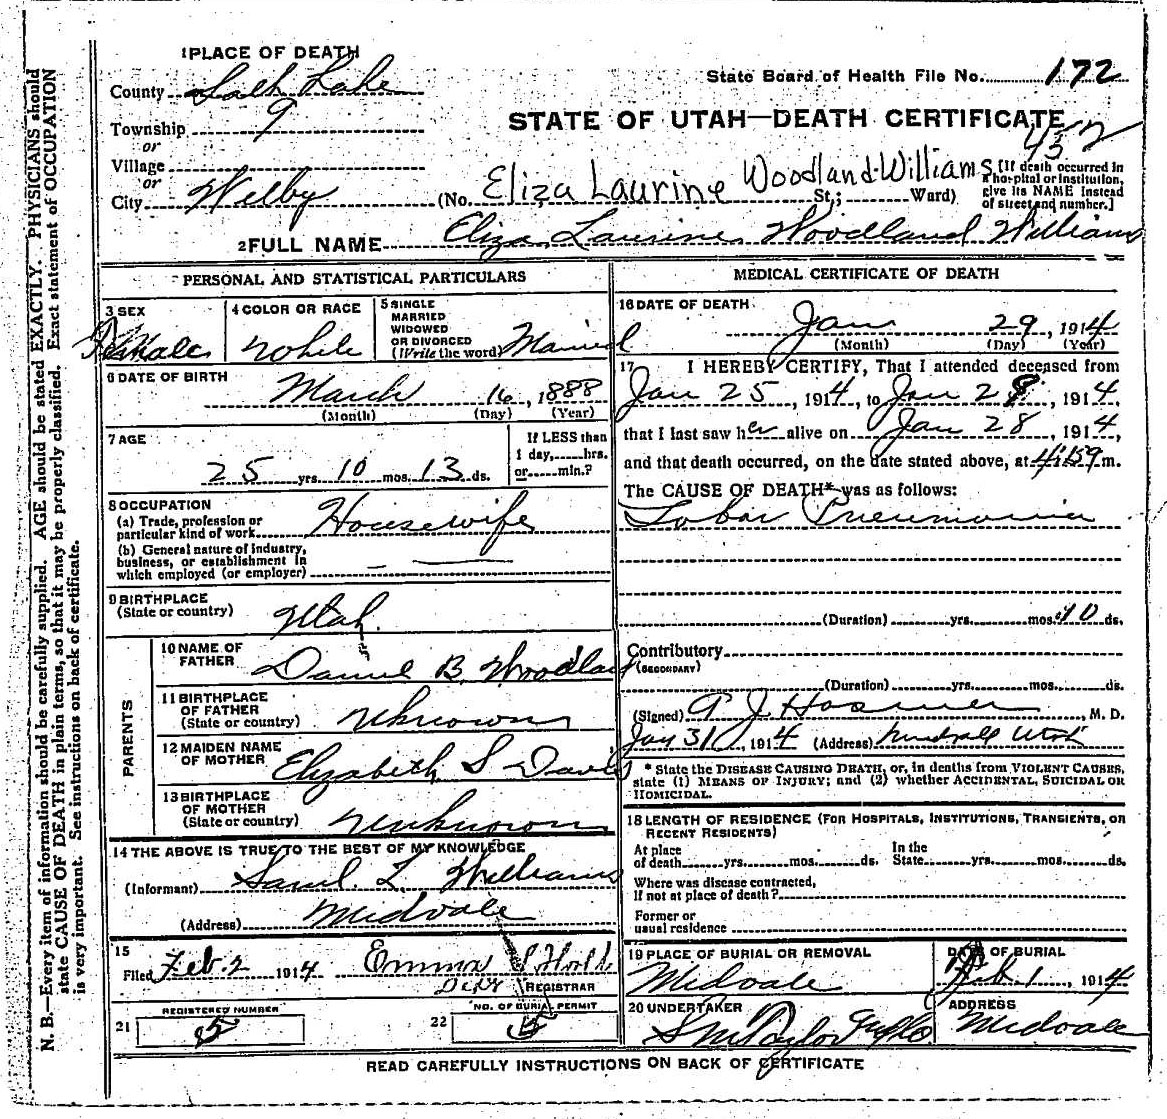 1 PLACE OF DEATH
County Salt Lake
State Board of Health File No. 172
Township 9
or
STATE OF UTAH—DEATH CERTIFICATE
Village
or
City Welby
(No. Eliza Laurine Woodland-Williams St; Ward)
[If death occurred in
a hospital or institution,
give its NAME instead
of street and number.]
2 FULL NAME Eliza Laurine Woodland Williams
PERSONAL AND STATISTICAL PARTICULARS
3 SEX
Female
4 COLOR OR RACE
White
5 SINGLE
MARRIED
WIDOWED
OR DIVORCED
(Write the word) Married
6 DATE OF BIRTH
March 16, 1888
(Month) (Day) (Year)
7 AGE
25 yrs. 10 mos. 13 ds.
If LESS than
1 day,......hrs.
or......min.?
8 OCCUPATION
(a) Trade, profession or
particular kind of work Housewife
(b) General nature of industry,
business, or establishment in
which employed (or employer)
9 BIRTHPLACE
(State or country)
Utah.
PARENTS
10 NAME OF
FATHER
Daniel B. Woodland
11 BIRTHPLACE
OF FATHER
(State or country)
unknown
12 MAIDEN NAME
OF MOTHER
Elizabeth S Davis
13 BIRTHPLACE
OF MOTHER
(State or country)
unknown
14 THE ABOVE IS TRUE TO THE BEST OF MY KNOWLEDGE
(Informant) Saml. L. Williams
(Address) Midvale
15
Filed Feb 2 1914 Emma
REGISTRAR
REGISTERED NUMBER
21 5
NO. OF BURIAL PERMIT
22 5
MEDICAL CERTIFICATE OF DEATH
16 DATE OF DEATH
Jan 29, 1914
(Month) (Day) (Year)
17 I HEREBY CERTIFY, That I attended deceased from
Jan 25, 1914, to Jan 28, 1914,
that I last saw her alive on Jan 28, 1914,
and that death occurred, on the date stated above, at m.
The CAUSE OF DEATH* was as follows:
Lobar Pneumonia
(Duration) yrs. mos. 10 ds.
Contributory
(SECONDARY)
(Duration) yrs. mos. ds.
(Signed) J. Hosmer, M. D.
Jan 31, 1914 (Address) Midvale Utah
* State the DISEASE CAUSING DEATH, or, in deaths from VIOLENT CAUSES,
state (1) MEANS OF INJURY; and (2) whether ACCIDENTAL, SUICIDAL OR
HOMICIDAL.
18 LENGTH OF RESIDENCE (FOR HOSPITALS, INSTITUTIONS, TRANSIENTS, OR
RECENT RESIDENTS)
At place
of death yrs. mos. ds.
In the
State yrs. mos. ds.
Where was disease contracted,
If not at place of death?
Former or
usual residence
19 PLACE OF BURIAL OR REMOVAL
Midvale
DATE OF BURIAL
Feb 1, 1914
20 UNDERTAKER
S M Taylor
ADDRESS
Midvale
READ CAREFULLY INSTRUCTIONS ON BACK OF CERTIFICATE
N. B.—Every item of information should be carefully supplied. AGE should be stated EXACTLY. PHYSICIANS should
state CAUSE OF DEATH in plain terms, so that it may be properly classified. Exact statement of OCCUPATION
is very important. See instructions on back of certificate.